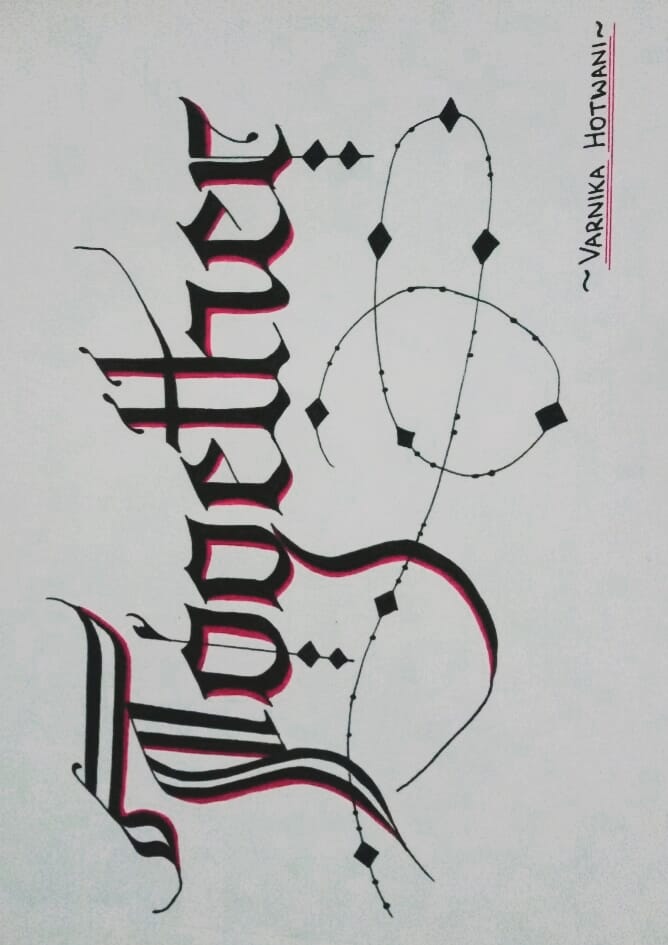 Together
~ VARNIKA HOTWANI ~